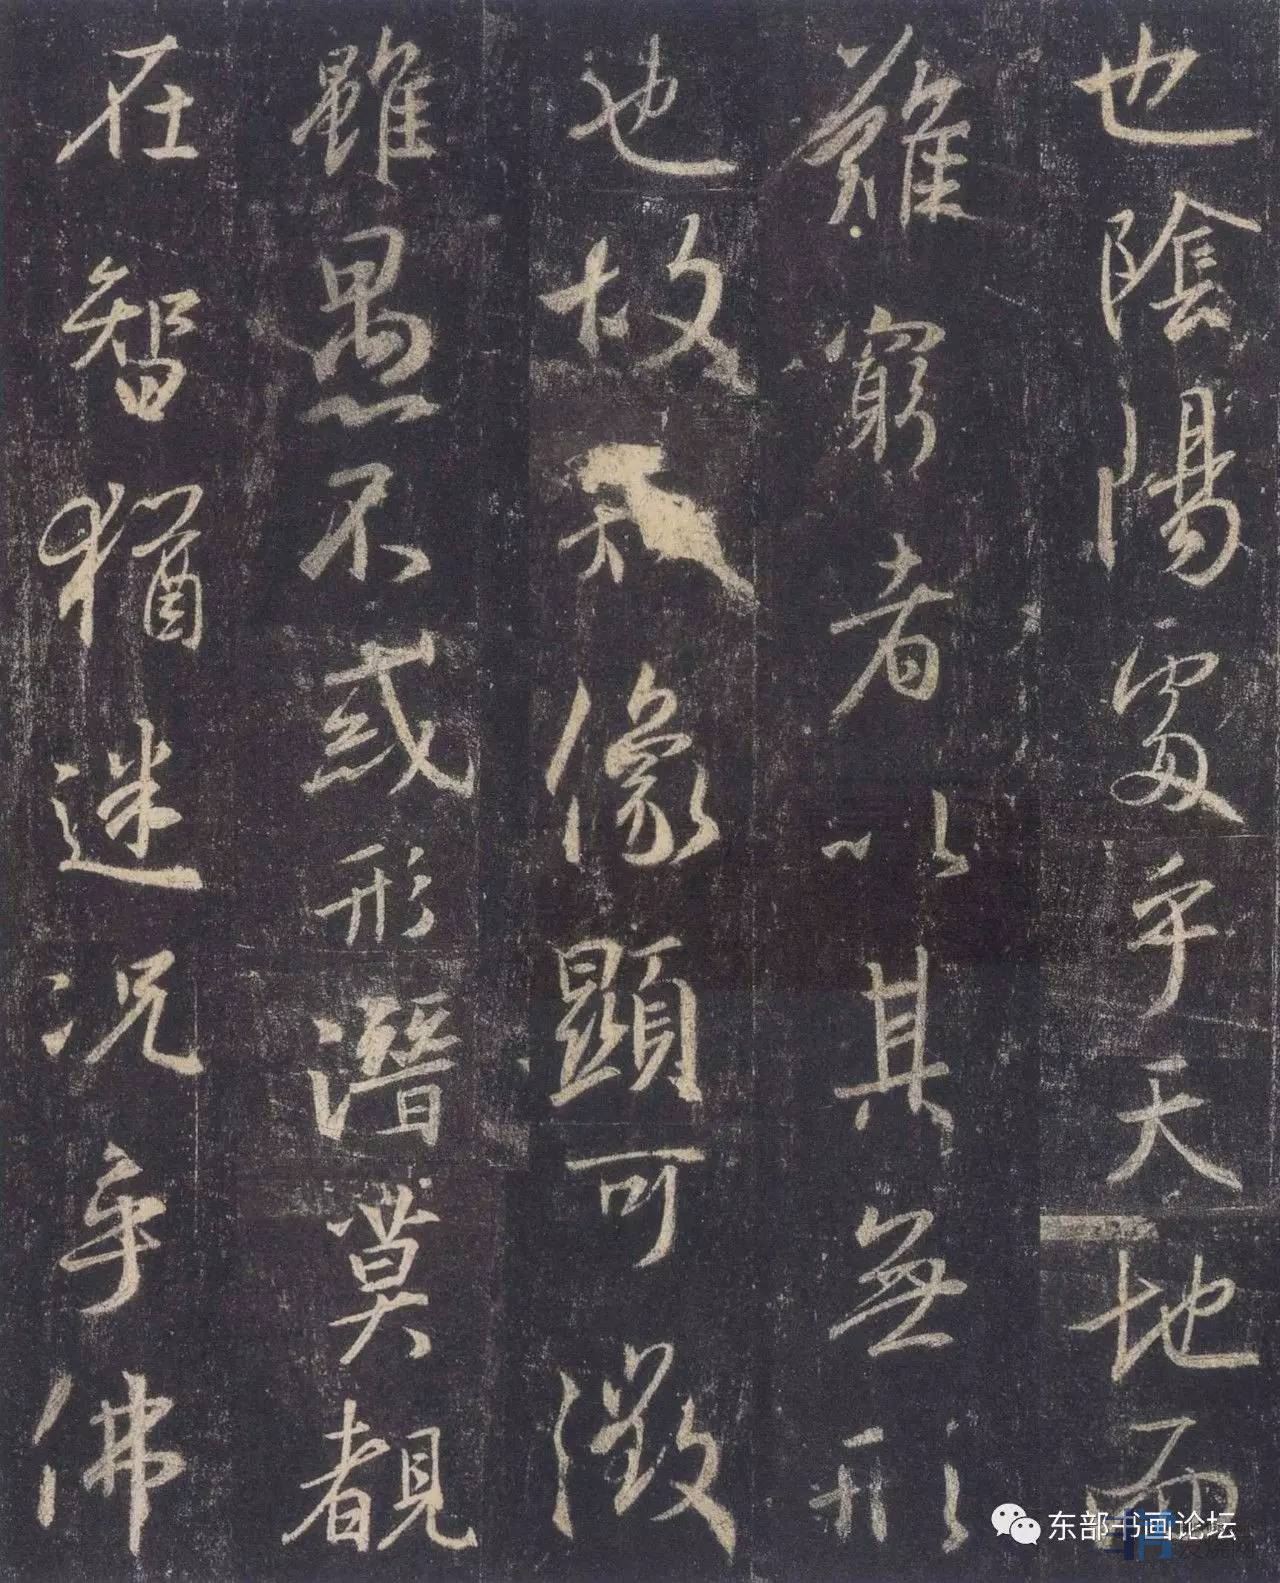 也陰陽處乎天地而
難窮者以其無形
也故知像顯可徵
雖愚不惑形潛莫覩
在智猶迷況乎佛
东部书画论坛